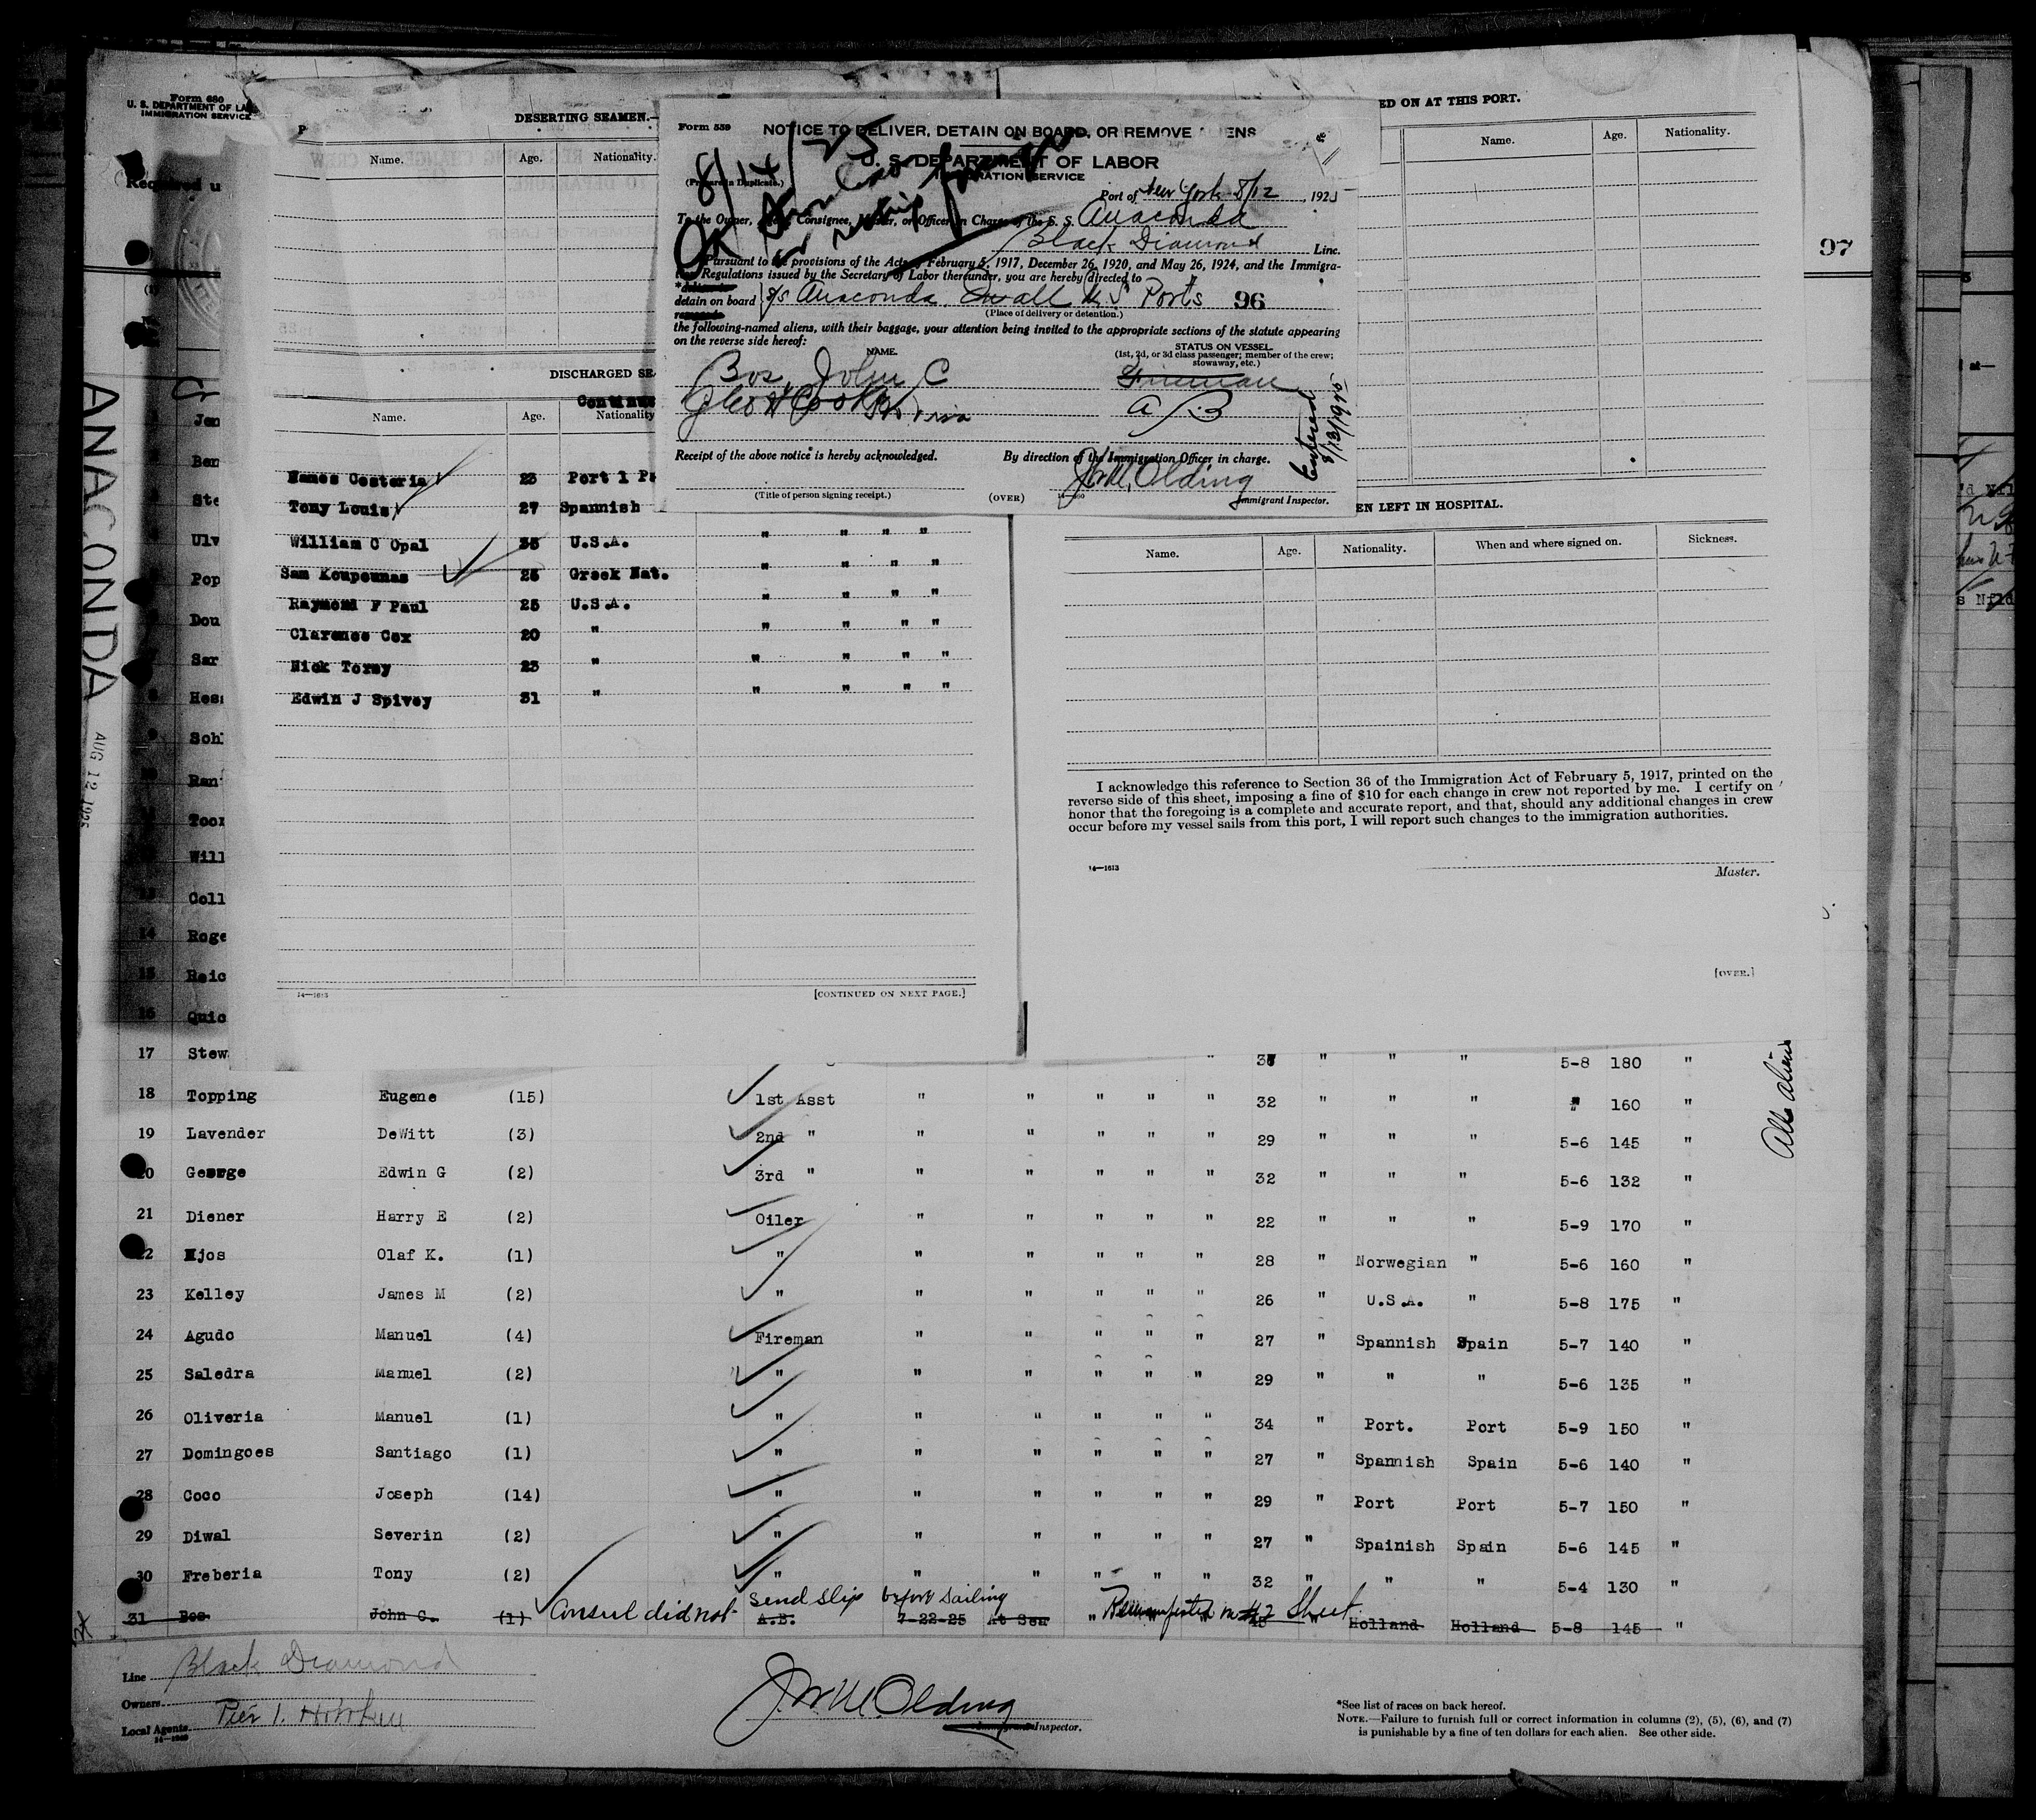 Form 680
U. S. DEPARTMENT OF LA
IMMIGRATION SERVICE
Required u
ANACONDA
AUG 12 1925
DESERTING SEAMEN.—
Name. Age. Nationality.
DISCHARGED SE
Continue
Name. Age. Nationality
Names Costeria 23 Port l P
Tony Louis 27 Spannish
William C Opal 35 U.S.A. " " " "
Sam Koupounas 25 Greek Nat. " " " "
Raymond F Paul 25 U.S.A. " " " "
Clarence Cox 20 " " " " "
Nick Tormy 23 " " " " "
Edwin J Spivey 31 " " " " "
14—1613 [CONTINUED ON NEXT PAGE.]
Form 559 NOTICE TO DELIVER, DETAIN ON BOARD, OR REMOVE ENS
8/14/25
U. S. DEPARTMENT OF LABOR
IMMIGRATION SERVICE
(Prepare in Duplicate.)
Port of New York 8/12, 1925
To the Owner, Consignee, Master, or Officer in Charge of the S. S. Anaconda
OK
Black Diamond Line.
Pursuant to the provisions of the Acts of February 5, 1917, December 26, 1920, and May 26, 1924, and the Immigra-
tion Regulations issued by the Secretary of Labor thereunder, you are hereby directed to
detain on board S/S Anaconda In all U.S. Ports 96
(Place of delivery or detention.)
the following-named aliens, with their baggage, your attention being invited to the appropriate sections of the statute appearing
on the reverse side hereof:
NAME. STATUS ON VESSEL.
(1st, 2d, or 3d class passenger; member of the crew;
stowaway, etc.)
Bos, John C Fireman
A B
Entered
8/13/1925
Receipt of the above notice is hereby acknowledged. By direction of the Immigration Officer in charge.
J W M Olding
(Title of person signing receipt.) (OVER) Immigrant Inspector.
ED ON AT THIS PORT.
Name. Age. Nationality.
97
EN LEFT IN HOSPITAL.
Name. Age. Nationality. When and where signed on. Sickness.
I acknowledge this reference to Section 36 of the Immigration Act of February 5, 1917, printed on the
reverse side of this sheet, imposing a fine of $10 for each change in crew not reported by me. I certify on
honor that the foregoing is a complete and accurate report, and that, should any additional changes in crew
occur before my vessel sails from this port, I will report such changes to the immigration authorities.
14—1613
Master.
[OVER.]
Jen
Ben
Ste
Ulv
Pop
Dou
Sar
Hes
Soh
Ran
Toor
Will
13 Coll
14 Roge
15 Reic
16 Quic
17 Stew " 37 " " " 5-8 180 "
18 Topping Eugene (15) 1st Asst " " " " " 32 " " " " 160 "
19 Lavender DeWitt (3) 2nd " " " " " " 29 " " " 5-6 145 "
20 George Edwin G (2) 3rd " " " " " " 32 " " " 5-6 132 "
21 Diener Harry E (2) Oiler " " " " " 22 " " " 5-9 170 "
22 Njos Olaf K. (1) " " " " " " 28 " Norwegian " 5-6 160 "
23 Kelley James M (2) " " " " " " 26 " U.S.A. " 5-8 175 "
24 Agudo Manuel (4) Fireman " " " " " 27 " Spannish Spain 5-7 140 "
25 Saledra Manuel (2) " " " " " " 29 " " " 5-6 135 "
26 Oliveria Manuel (1) " " " " " " 34 " Port. Port 5-9 150 "
27 Domingoes Santiago (1) " " " " " " 27 " Spannish Spain 5-6 140 "
28 Coco Joseph (14) " " " " " " 29 " Port Port 5-7 150 "
29 Diwal Severin (2) " " " " " " 27 " Spainish Spain 5-6 145 "
30 Freberia Tony (2) " " " " " " 32 " " " 5-4 130 "
Send Slip before Sailing
31 Bos John C. (1) Consul did not A.B. 7-22-25 At Sea " Remanifested on #2 Sheet. 45 Holland Holland 5-8 145 "
All aliens
Line Black Diamond
Owners
Local Agents Pier 1. Hoboken
J W M Olding
Inspector.
*See list of races on back hereof.
NOTE.—Failure to furnish full or correct information in columns (2), (5), (6), and (7)
is punishable by a fine of ten dollars for each alien. See other side.